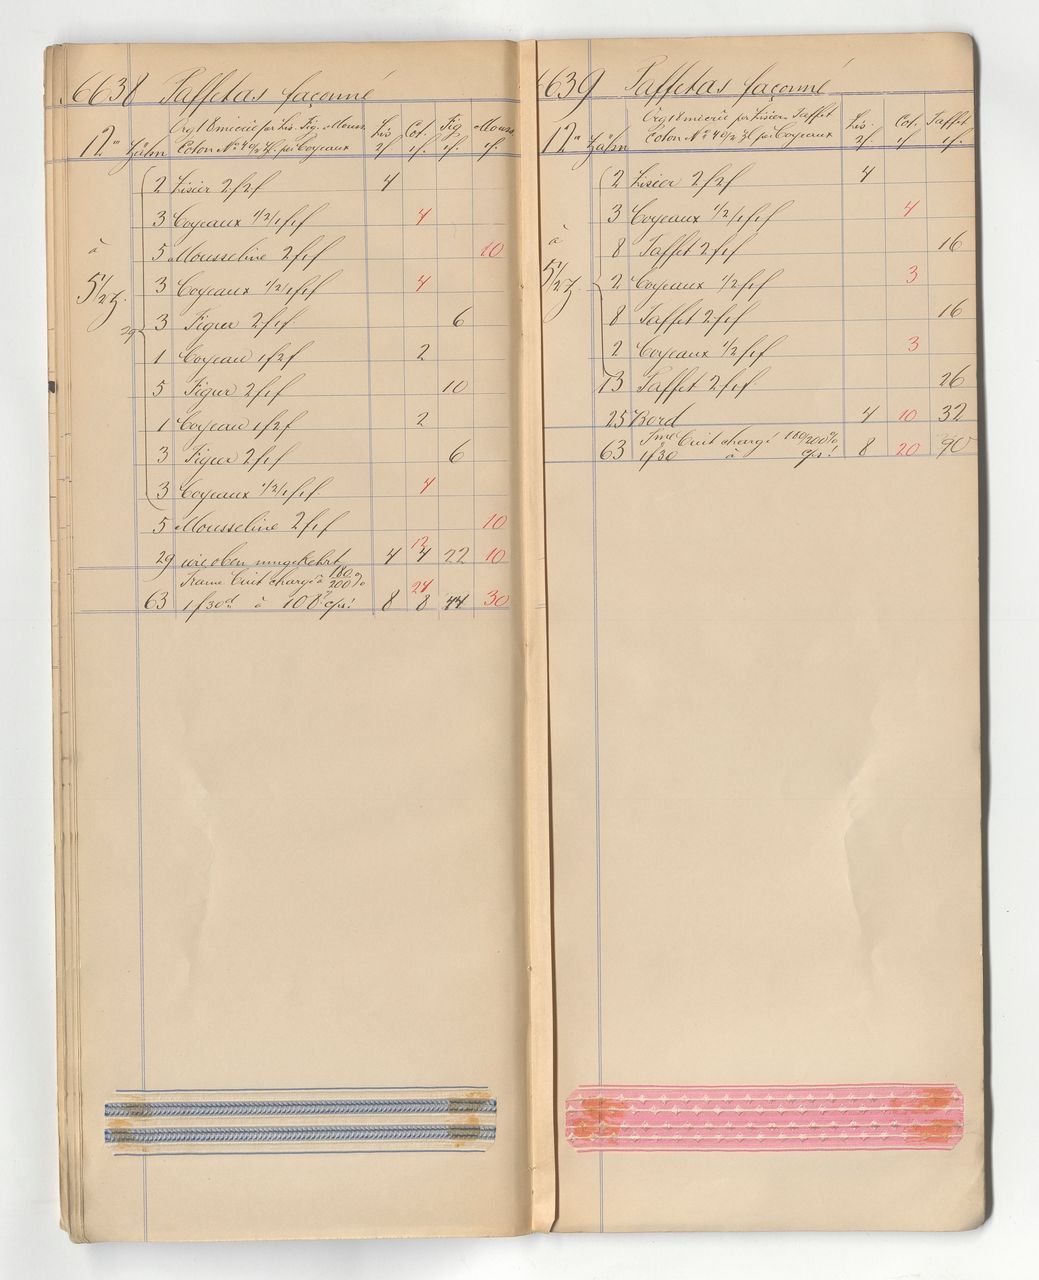 6638 Taffetas façonné
12''' Zähn
Lis Cot. Fig Mouss
Coton Nº 40/2 Zf. per Coyeaux 2f 1f. 1f. 1f.
2 Lisier 2f2f 4
3 Coyeaux 1/2/1f1f 4
à 5 Mousseline 2f1f 10
5 1/2 Z. 3 Coyeaux 1/2/1f1f 4
29 3 Figur 2f1f. 6
1 Coyeau 1f2f 2
5 Figur 2f1f 10
1 Coyeau 1f2f 2
3 Figur 2f1f 6
3 Coyeaux 1/2/1f1f 4
5 Mousseline 2f1f 10
29 wie oben umgekehrt 4 12 4 22 10
Trame Cuit chargé à 180 200%
63 1f30d à 108 cps! 8 24 8 44 30
6639 Taffetas façonné
12''' Zähn
per Lisier, Taffet Lis. Cot. Taffet
Coton Nº 40/2 Zf per Coyeaux 2f 1f 1f.
2 Lisier 2f2f 4
3 Coyeaux 1/2/1f1f 4
à 8 Taffet 2f1f 16
5 1/2 Z. 2 Coyeaux 1/2/1f1f 3
8 Taffet 2f1f 16
2 Coyeaux 1/2f1f 3
13 Taffet 2f1f. 26
25 Bord 4 10 32
Tme Cuit chargé 180/200%
63 1f30 à cps! 8 20 90